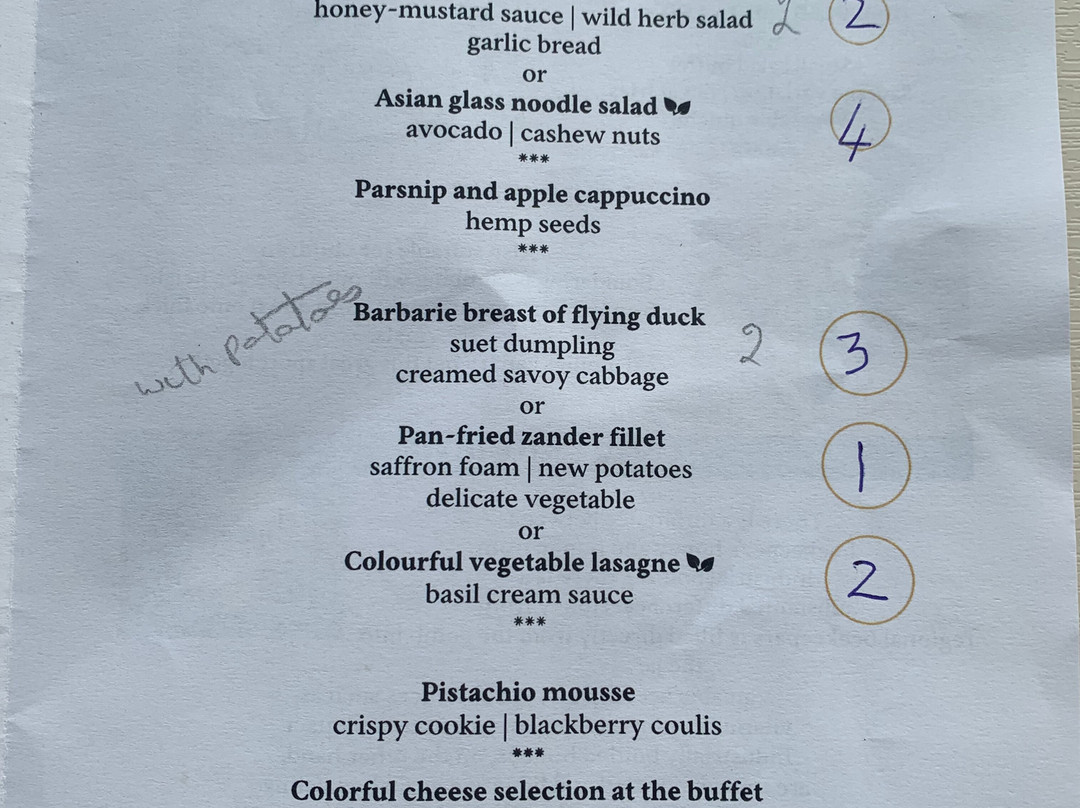 honey-mustard sauce | wild herb salad 2 2
garlic bread
or
Asian glass noodle salad 4
avocado | cashew nuts
***
Parsnip and apple cappuccino
hemp seeds
***
with potatoes
Barbarie breast of flying duck
suet dumpling 2 3
creamed savoy cabbage
or
Pan-fried zander fillet
saffron foam | new potatoes 1
delicate vegetable
or
Colourful vegetable lasagne
basil cream sauce 2
***
Pistachio mousse
crispy cookie | blackberry coulis
***
Colorful cheese selection at the buffet